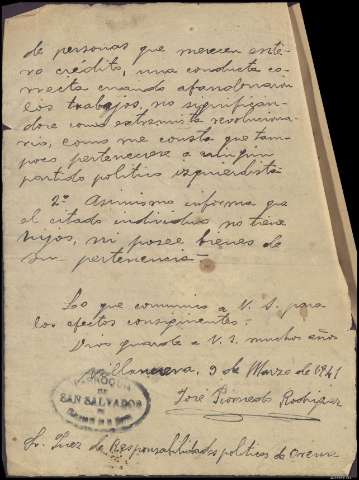 de personas que merecen ente-
ro crédito, una conducta co-
rrecta cuando abandonaron
los trabajos, no significan-
dose como extremista revoluciona-
rio, como me consta que tam-
poco pertenecese a ningun
partido politico izquierdista
2º Asimismo informa que
el citado individuo no tiene
hijos, ni posee bienes de
su pertenencia.—
Lo que comunico a V. S. para
los efectos consiguientes.
Dios guarde a V. S. muchos años
Villanueva, 9 de Marzo de 1941
José Rodriguez
PARROQUIA
DE
SAN SALVADOR
Sr. Juez de Responsabilidades politicas de Orense